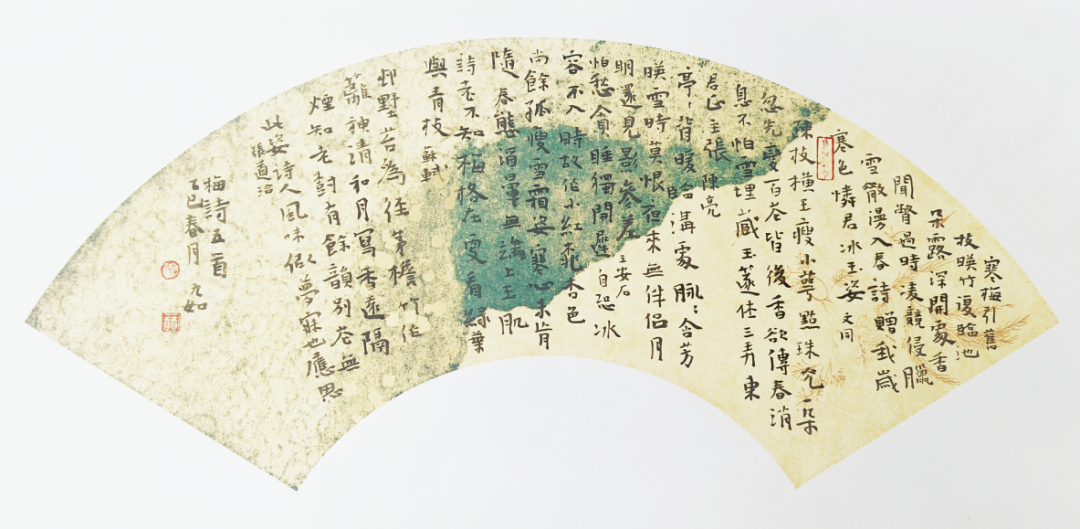 寒梅引舊
枝暎竹復臨池
朵露深開處香
聞瞥過時凌競侵臘
雪散漫入春詩贈我歲
寒色憐君冰玉姿 文同
疎枝橫玉瘦小萼點珠光一朵
忽先變百花皆後香欲傳春消
息不怕雪埋藏玉篴休三弄東
君正主張 陳亮
亭〻背暖臨溝處脈〻含芳
暎雪時莫恨夜來無伴侶月
明還見影參差 王安石
怕愁貪睡獨開遲自恐冰
容不入時故作小紅桃杏色
尚餘孤瘦雪霜姿寒心未肯
隨春態酒暈無端上玉肌
詩老不知梅格在更看綠葉
與青枝 蘇軾
邨墅苔為徑茅檐竹作
籬神清和月寫香遠隔
煙知老樹有餘韻別花無
此姿詩人風味似夢寐也應思
張道洽
梅詩五首
乙巳春月 元如